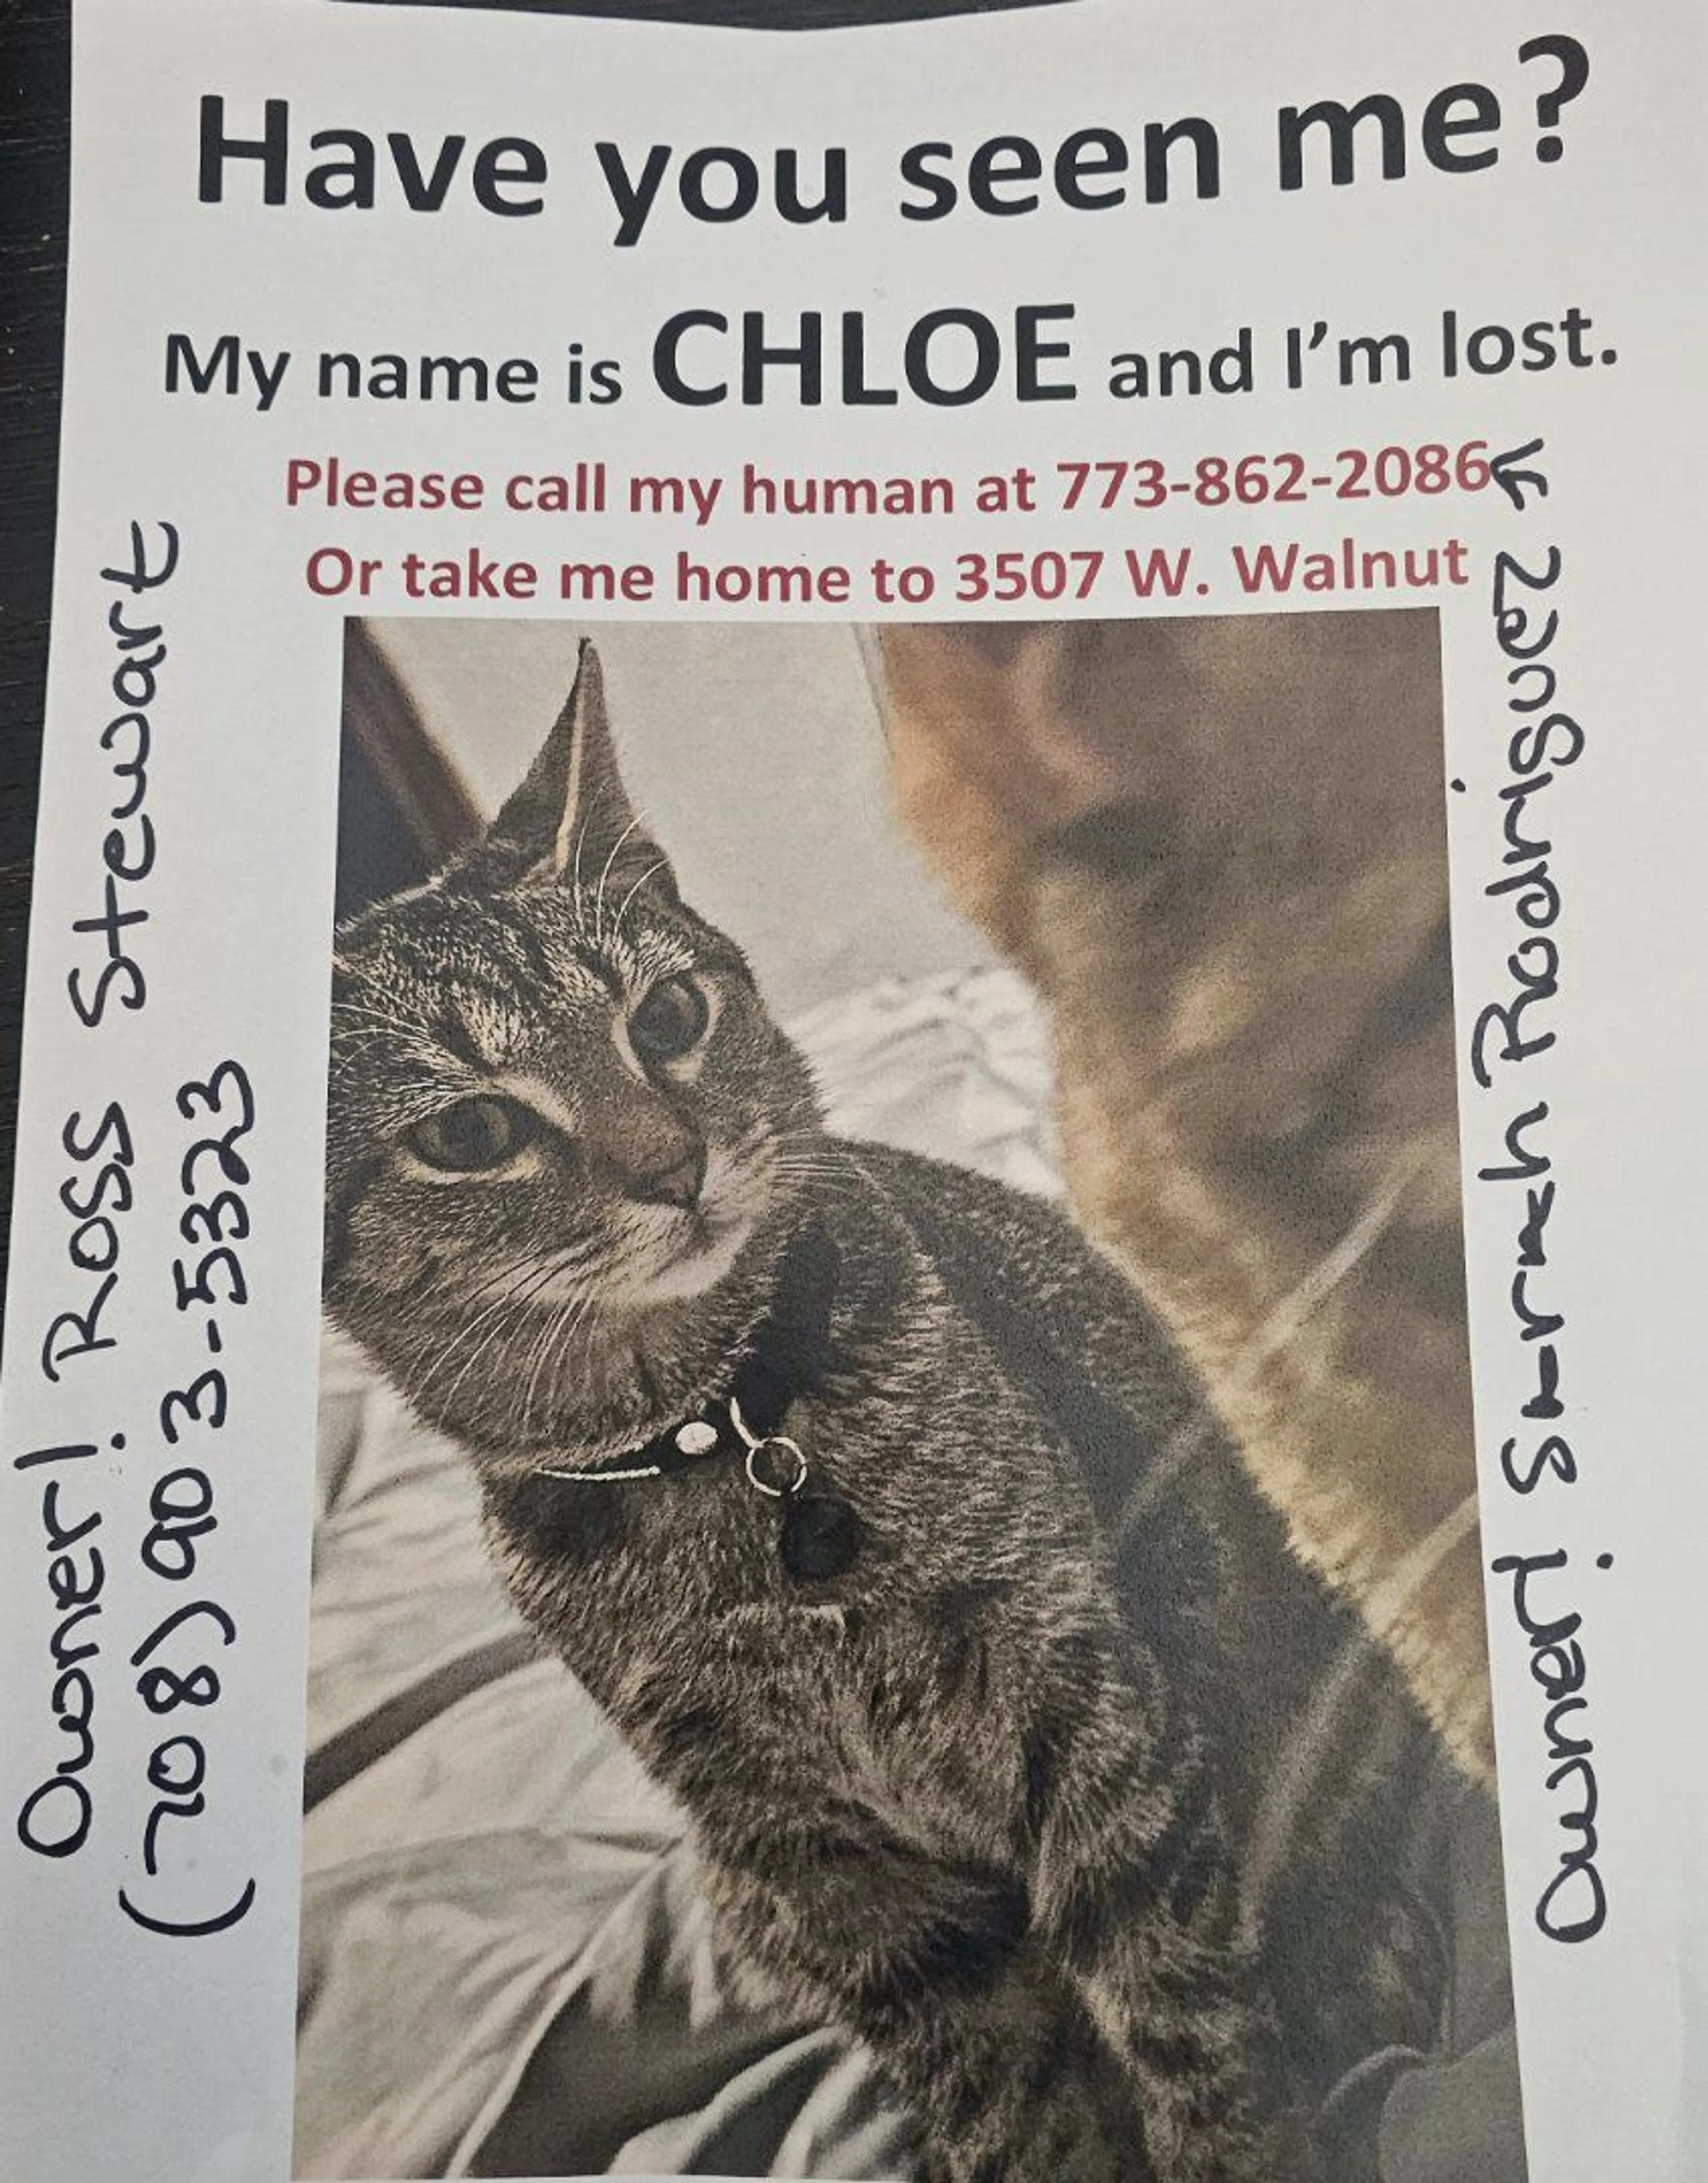 Have you seen me?
My name is CHLOE and I'm lost.
Please call my human at 773-862-2086
Or take me home to 3507 W. Walnut
Owner! Ross Stewart
(708) 903-5323
Owner! Sarah Rodriguez